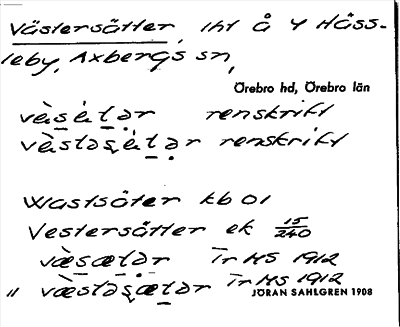 Västersätter, lht å Y Häss-
leby, Axbergs sn,
Örebro hd, Örebro län
vèsétər renskrift
vèstəsétər renskrift
Wastsäter kb 01
Vestersätter ek 15/240
væ̀sætər Tr HS 1912
" væ̀stəsætər Tr HS 1912
JÖRAN SAHLGREN 1908